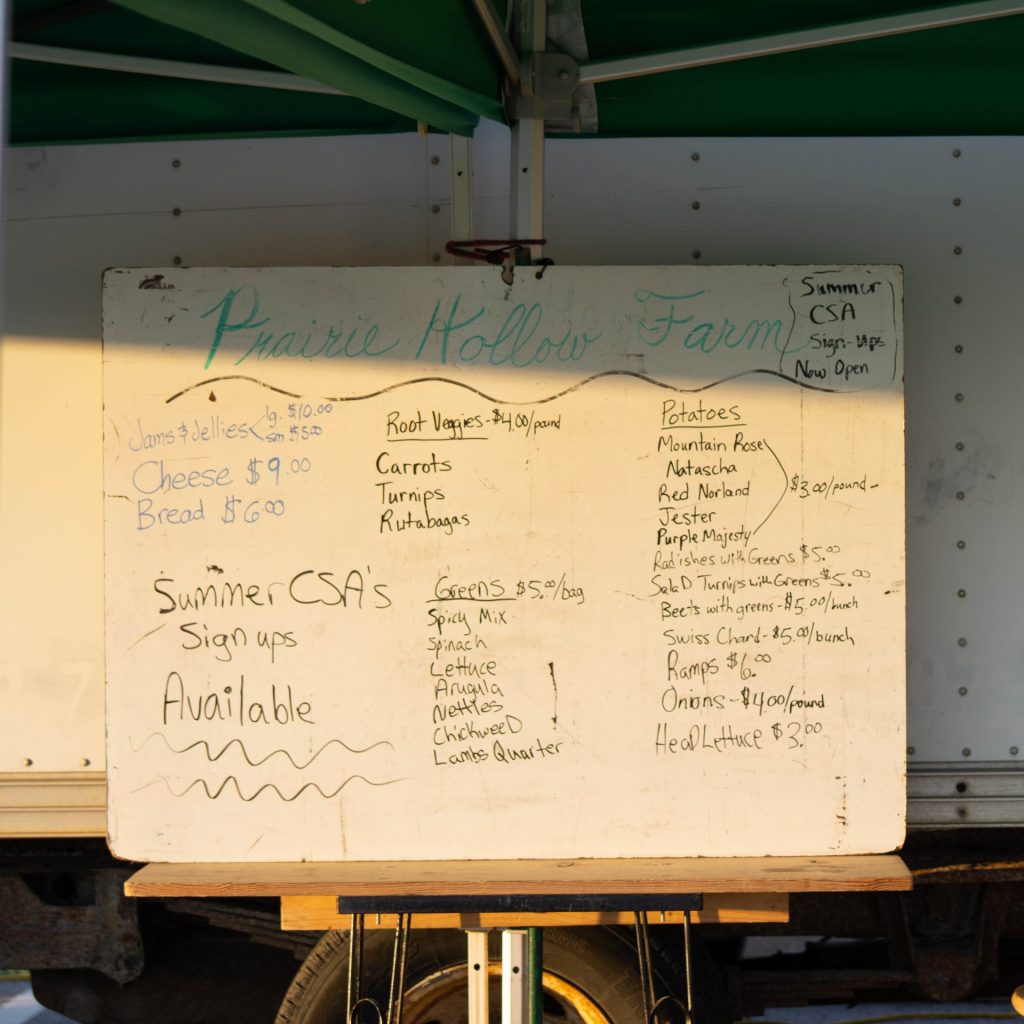 Prairie Hollow Farm
Summer
CSA
Sign-ups
Now Open
Jams & Jellies lg. $10.00
sm $5.00
Cheese $9.00
Bread $6.00
Summer CSA's
Sign ups
Available
Root Veggies - $4.00/pound
Carrots
Turnips
Rutabagas
Greens $5.00/bag
Spicy Mix
Spinach
Lettuce
Arugula
Nettles
ChickweeD
Lambs Quarter
Potatoes
Mountain Rose
Natascha
Red Norland
Jester
Purple Majesty
$3.00/pound -
Radishes with Greens $5.00
SalaD Turnips with Greens $5.00
Beets with greens - $5.00/bunch
Swiss Chard - $5.00/bunch
Ramps $6.00
Onions - $4.00/pound
HeaD Lettuce $3.00